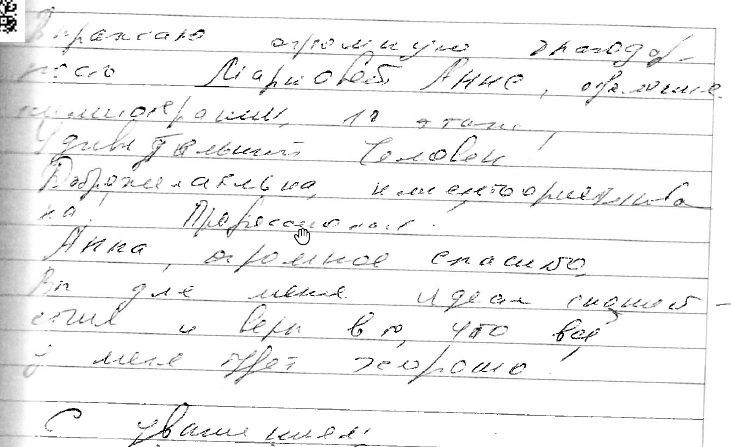 Выражаю огромную благодар-
ность Марковой Анне, отделение
химиотерапии, 12 этаж,
Удивительный человек
Доброжелательна, клиентоориентирова
на. Профессионал.
Анна, огромное спасибо,
Вы для меня идеал
и веры в то, что всё
у меня будет хорошо!
С уважением: